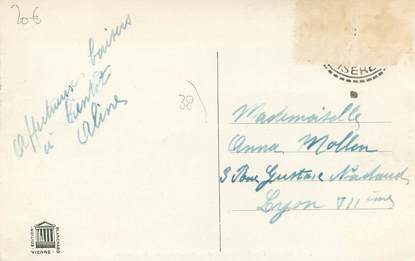 20€
Affectueux baisers
à bientôt
Aline
38
ISERE
Mademoiselle
Anna Mollon
3 Rue Gustave Nadaud
Lyon VII ième
EDITION BLANCHARD
VIENNE